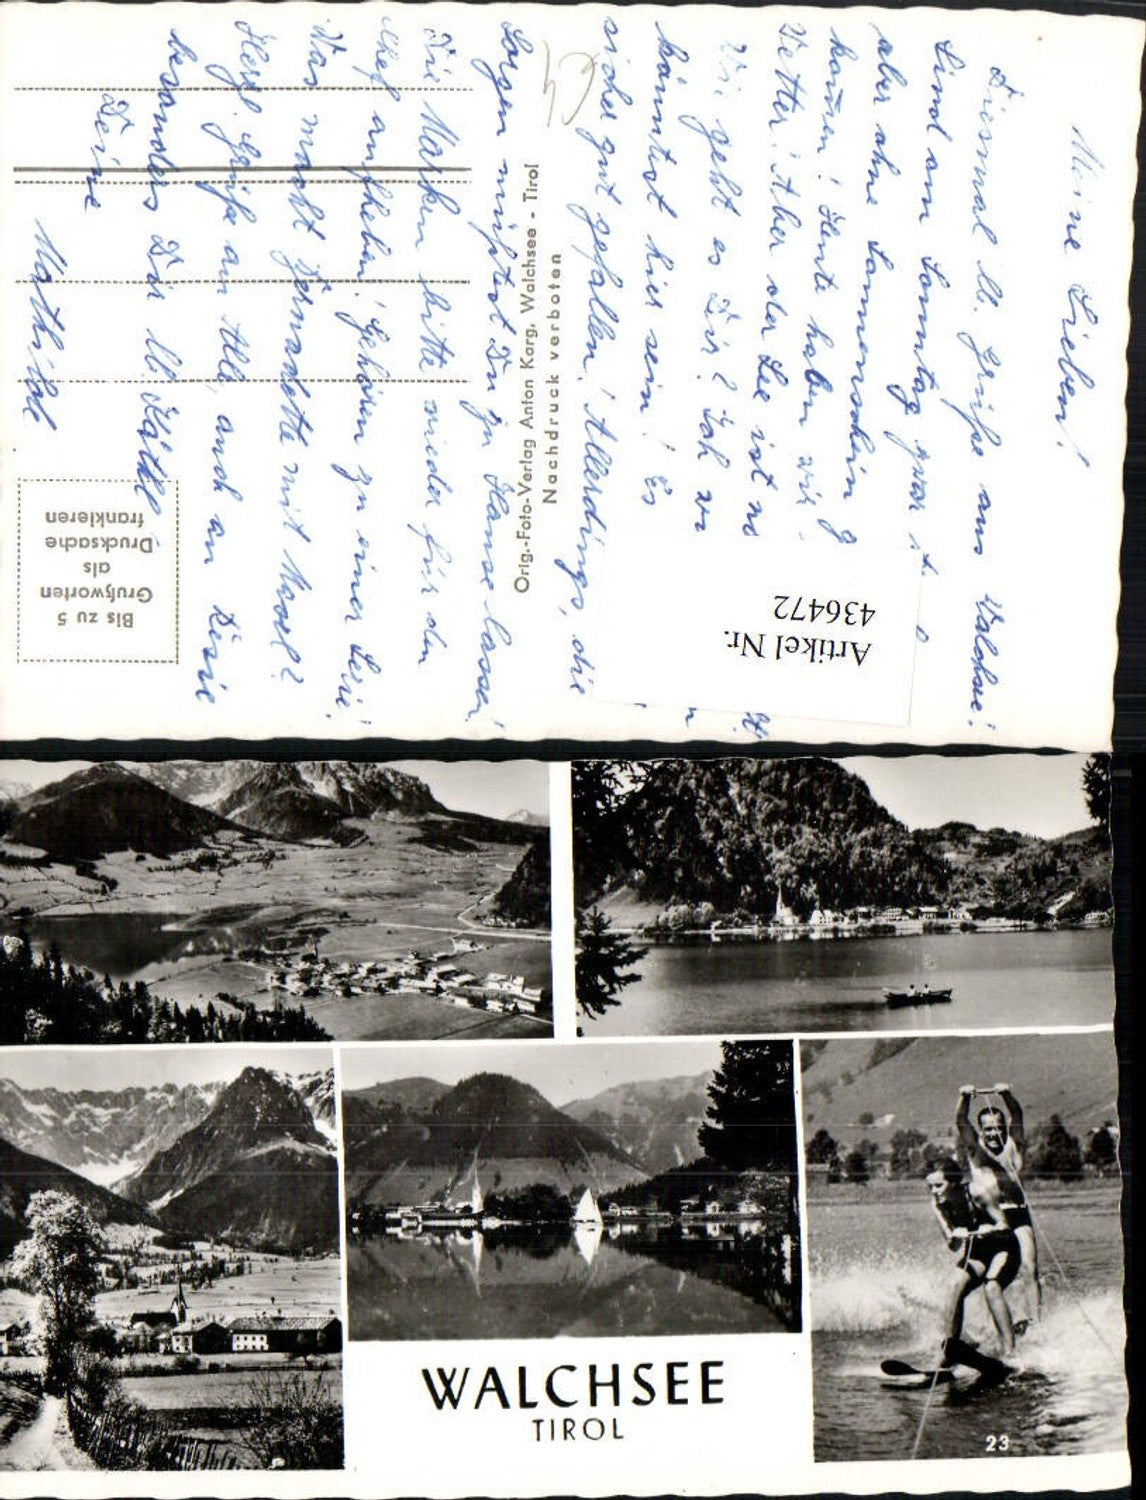 Meine Lieben!
Diesmal ll. Grüße aus Walchsee!
Sind am Sonntag zwar
aber ohne Sonnenschein
kommen! Heute haben wir
Wetter! Aber der See ist
Wie geht es Dir? Ich
könntest hier sein! Es
sicher gut gefallen! Allerdings, die
Sorgen müßtest Du zu Hause lassen!
Die Marken bitte wieder für den
Chef aufheben! Gehören zu einer Serie!
Was macht Bernadette mit
Herzl. Grüße an Alle, auch an
besonders Dir ll.
Deine
Mathilde
Orig.-Foto-Verlag Anton Karg, Walchsee - Tirol
Nachdruck verboten
Bis zu 5
Grußworten
als
Drucksache
frankieren
Artikel Nr.
436472
WALCHSEE
TIROL
23